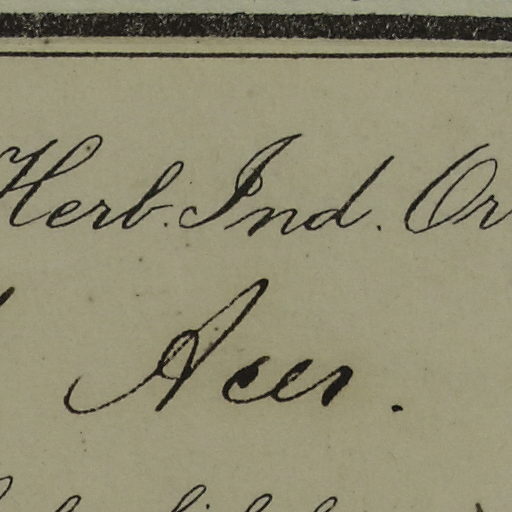 Herb. Ind. Or
Acer.